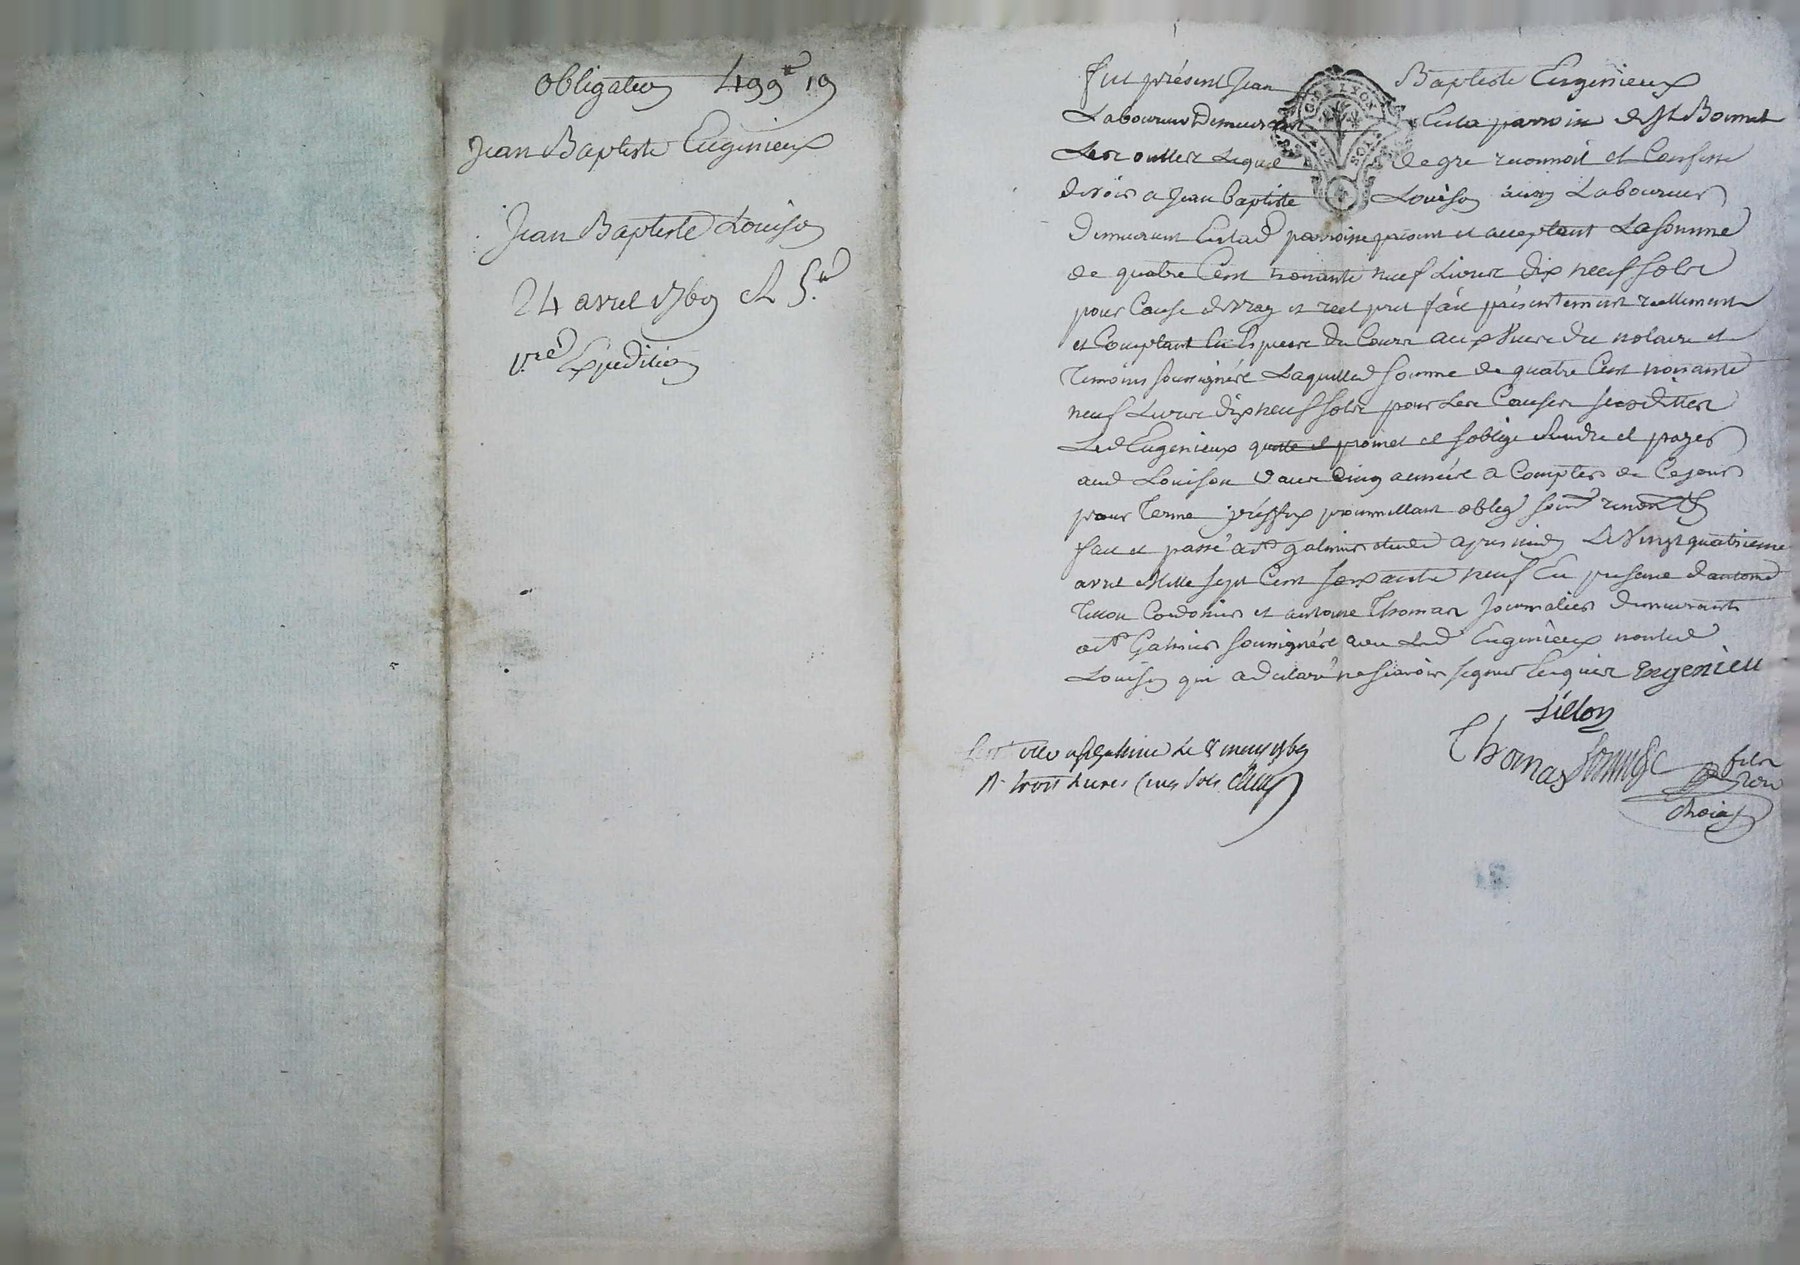 Obligation 499# 19
Jean Baptiste Eugenieux
Jean Baptiste Louison
24 avril 1769
Expedition
fut présent Jean Baptiste Eugenieux
Laboureur Demeurant En la parroisse de St Bonnet
Les oulles Lequel de gre reconnoit et Confesse
devoir a Jean baptiste Louison aussy Laboureur
Demeurant En lad parroisse présent et acceptant La somme
de quatre Cent nonante neuf Livres dix neuf sols
pour Cause de vray et reel pret fait présentement reellement
et Comptant En Espece du Cours au du notaire et
Temoins soussignés Laquelle somme de quatre Cent nonante
neuf Livres dix neuf sols pour Les Causes susdittes
Led Eugenieux promet et soblige rendre et payer
aud Louison dans Cinq années a Compter de Ce jour
pour Terme préfix promettant oblig soum renon
fait et passé a St galmier etude apres midy Le Vingt quatrieme
avril Mille sept Cent soixante neuf En presence d antoine
Tillon Cordonier et antoine Thomas Journalier demeurants
a St Galmier soussignés avec Led Eugenieux non led
Louison qui a declaré ne scavoir signer Enquis Engenieu
tillon
Thomas
Le 8 may 1769
R. trois livres Cinq sols